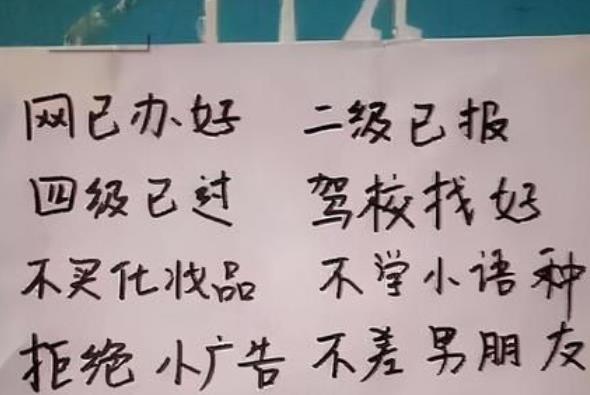 网已办好 二级已报
四级已过 驾校找好
不买化妆品 不学小语种
拒绝小广告 不差男朋友